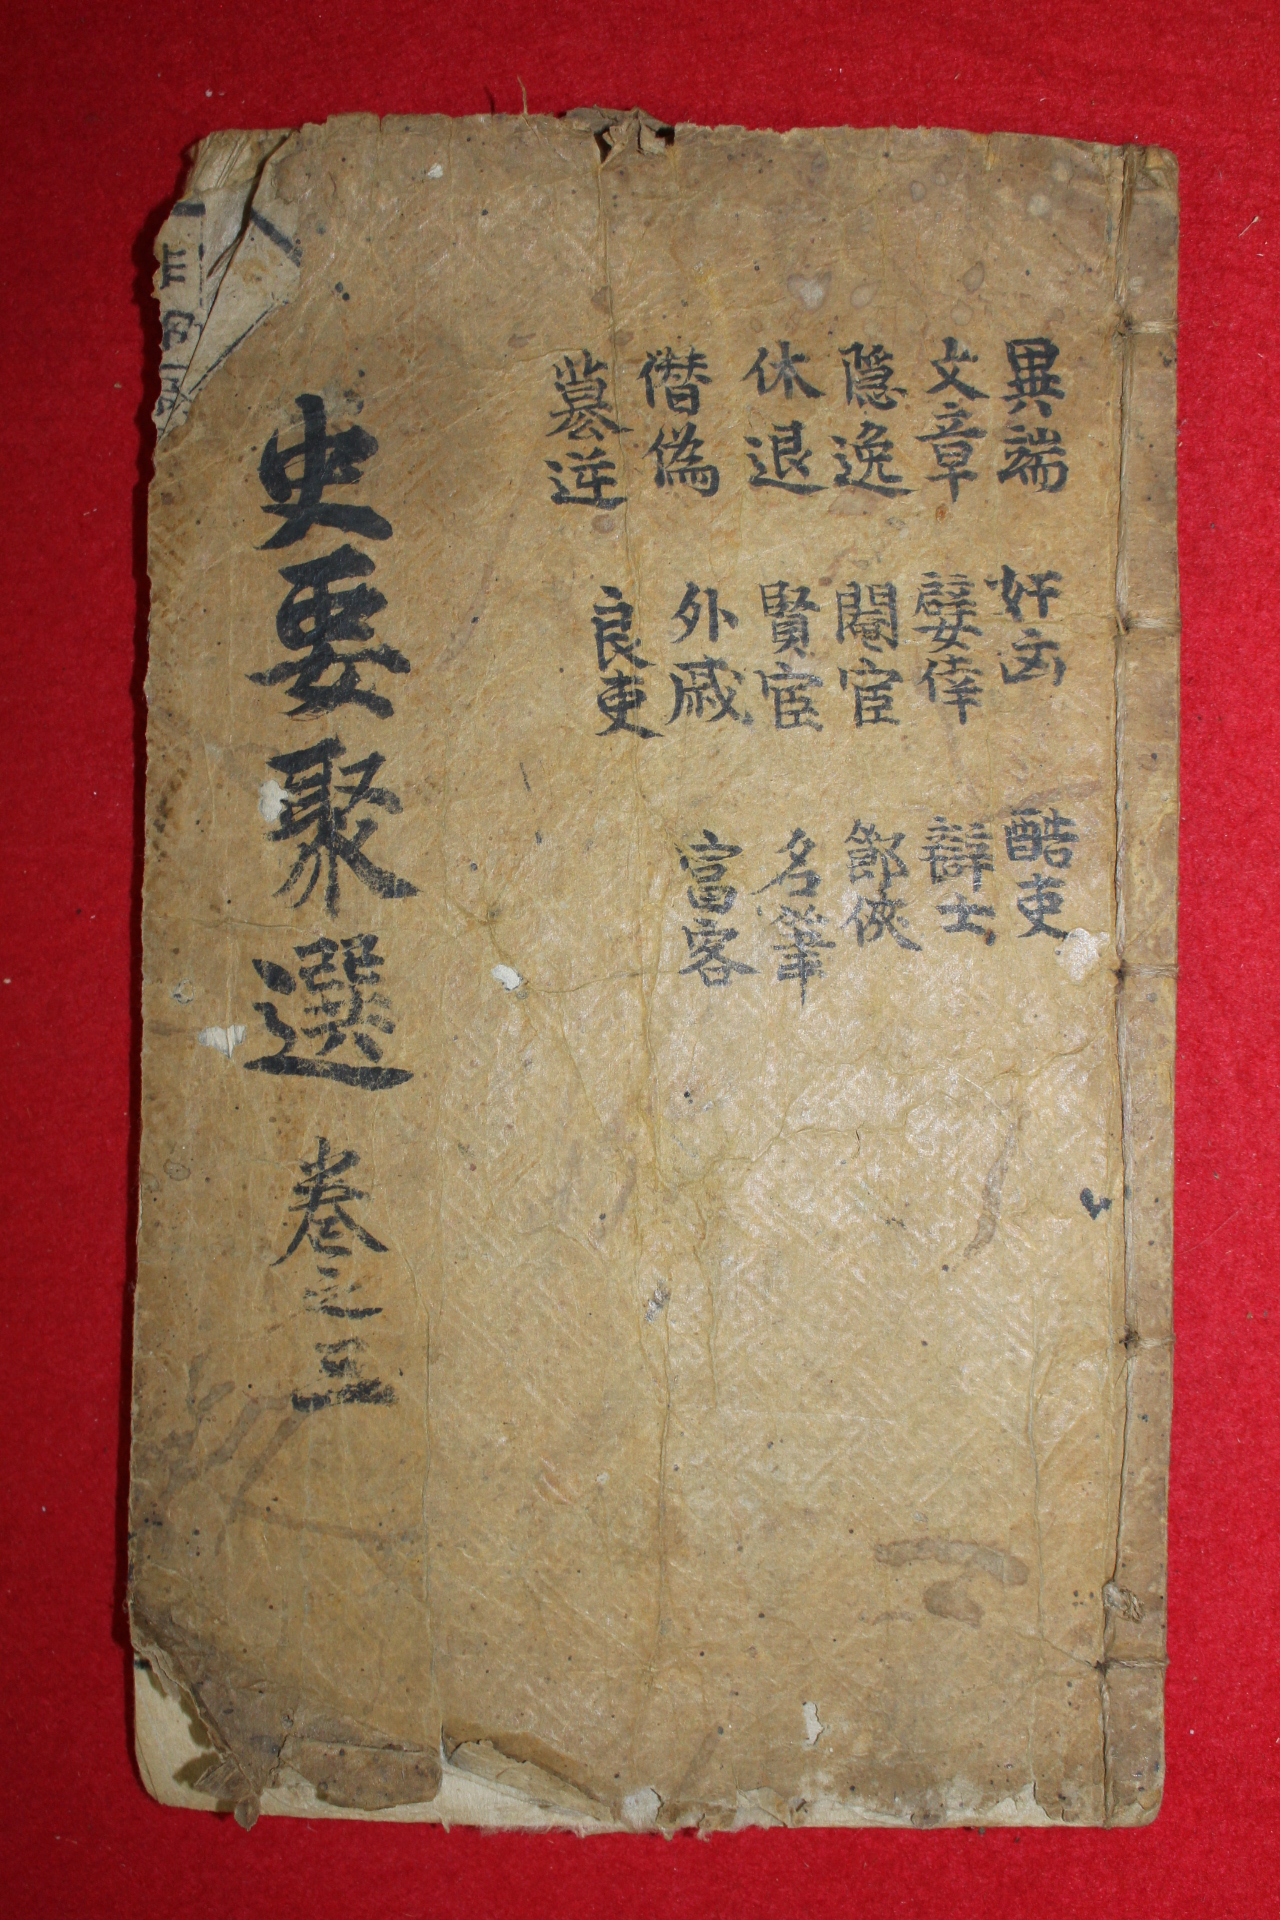 異端 奸凶 酷吏
文章 嬖倖 辯士
隐逸 閹宦 節俠
休退 賢宦 名筆
僣偽 外戚 富客
簒逆 良吏
史要聚選 卷之三